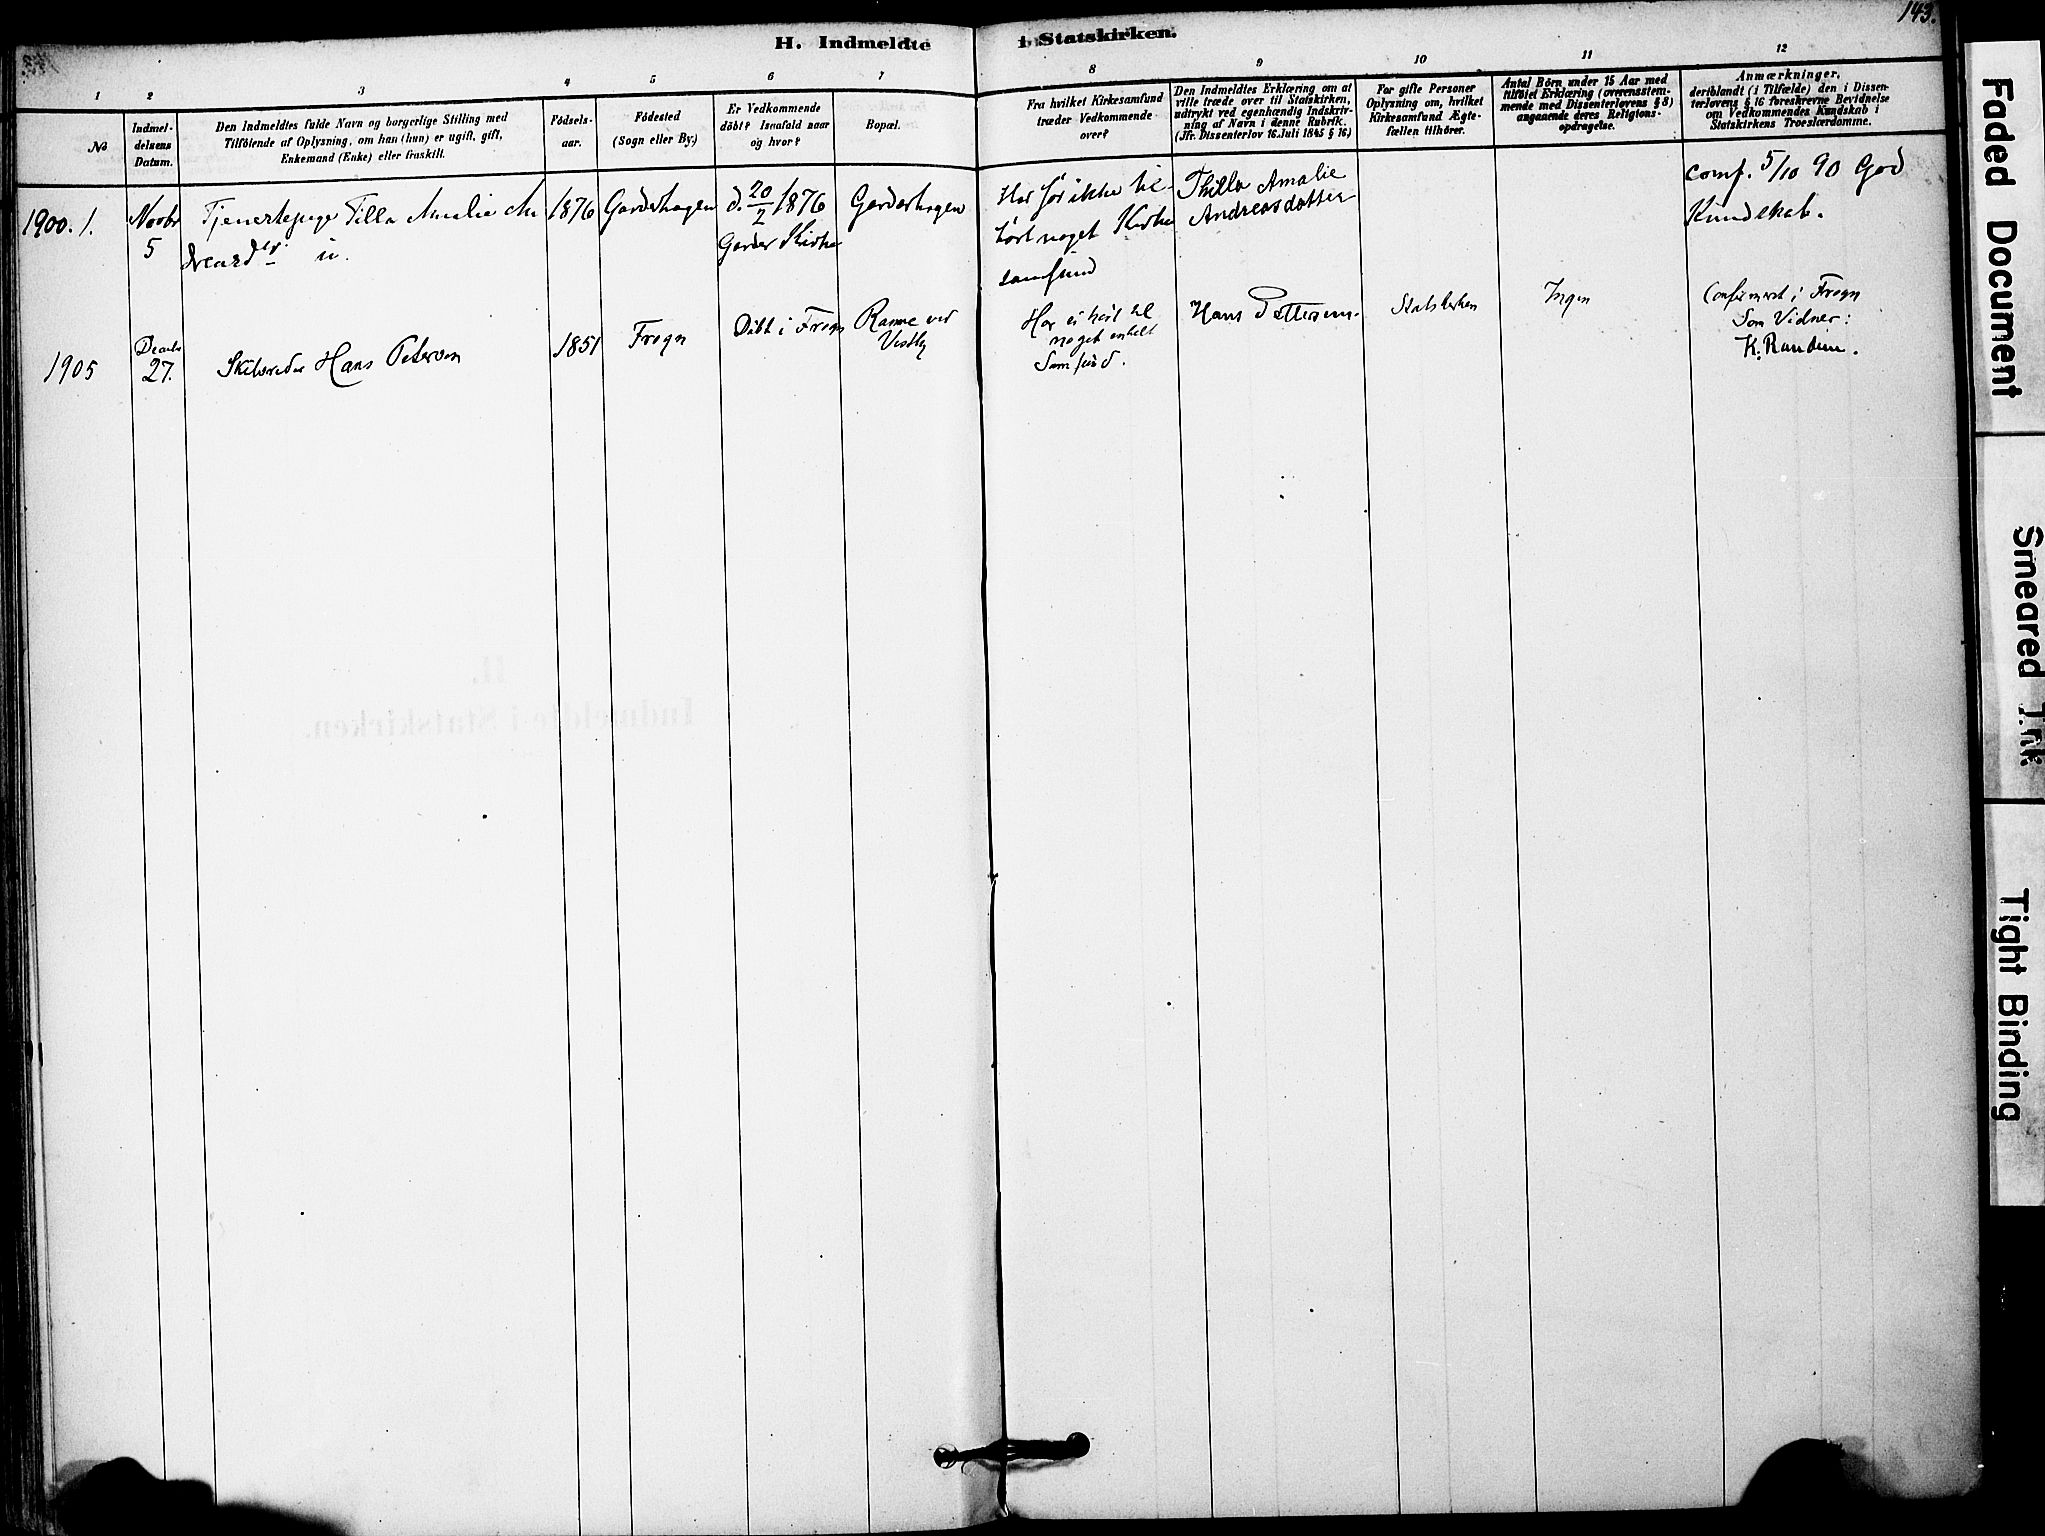 143.
H. Indmeldte i Statskirken.
1 2 3 4 5 6 7 8 9 10 11 12
No
Indmel-
delsens
Datum.
Den Indmeldtes fulde Navn og borgerlige Stilling med
Tilföiende af Oplysning, om han (hun) er ugift, gift,
Enkemand (Enke) eller fraskilt.
Födsels-
aar.
Födested
(Sogn eller By.)
Er Vedkommende
döbt? Isaafald naar
og hvor?
Bopæl.
Fra hvilket Kirkesamfund
træder Vedkommende
over?
Den Indmeldtes Erklæring om at
ville træde over til Statskirken,
udtrykt ved egenhændig Indskriv-
ning af Navn i denne Rubrik.
(Jfr. Dissenterlov 16. Juli 1845 § 16)
For gifte Personer
Oplysning om, hvilket
Kirkesamfund Ægte-
fællen tilhörer.
Antal Börn under 15 Aar med
tilföiet Erklæring (overensstem-
mende med Dissenterlovens § 8)
angaaende deres Religions-
opdragelse.
Anmærkninger,
deriblandt (i Tilfælde) den i Dissen-
terlovens § 16 foreskrevne Bevidnelse
om Vedkommendes Kundskab i
Statskirkens Troeslærdomme.
1900. 1.
Novbr
5
Tjenestepige Tilla Amalie An
dreasdr. u.
1876
Garderhagen
d. 20/2 1876
Garder Kirke
Garderhagen
Har før ikke til-
hørt noget Kirke
samfund
Thilla Amalie
Andreasdatter
conf. 5/10 90 God
Kundskab.
1905
Decbr
27.
Hans Petersen
1851
Frogn
Döbt i Frogn
Ramme ved
Vestby
Har ei hørt til
noget enkelt
Samfund.
Hans Pettersen.
Statskirken
Ingen
Confirmeret i Frogn
Som Vidner:
K. Randem.
H.
Indmeldte i Statskirken.
Faded Document
Smeared Ink
Tight Binding